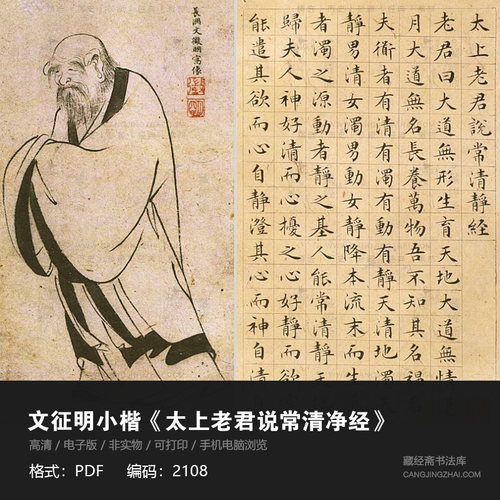 長洲文徵明寫像
太上老君說常清靜經
老君曰大道無形生育天地大道無
月大道無名長養萬物吾不知其名
夫衜者有清有濁有動有靜天清地濁
靜男清女濁男動女靜降本流末而生
者濁之源動者靜之基人能常清靜
歸夫人神好清而心擾之心好靜而
能遣其欲而心自靜澄其心而神自清
文征明小楷《太上老君说常清净经》
高清 / 电子版 / 非实物 / 可打印 / 手机电脑浏览
格式：PDF 编码：2108
藏经斋书法库
CANGJINGZHAI.COM